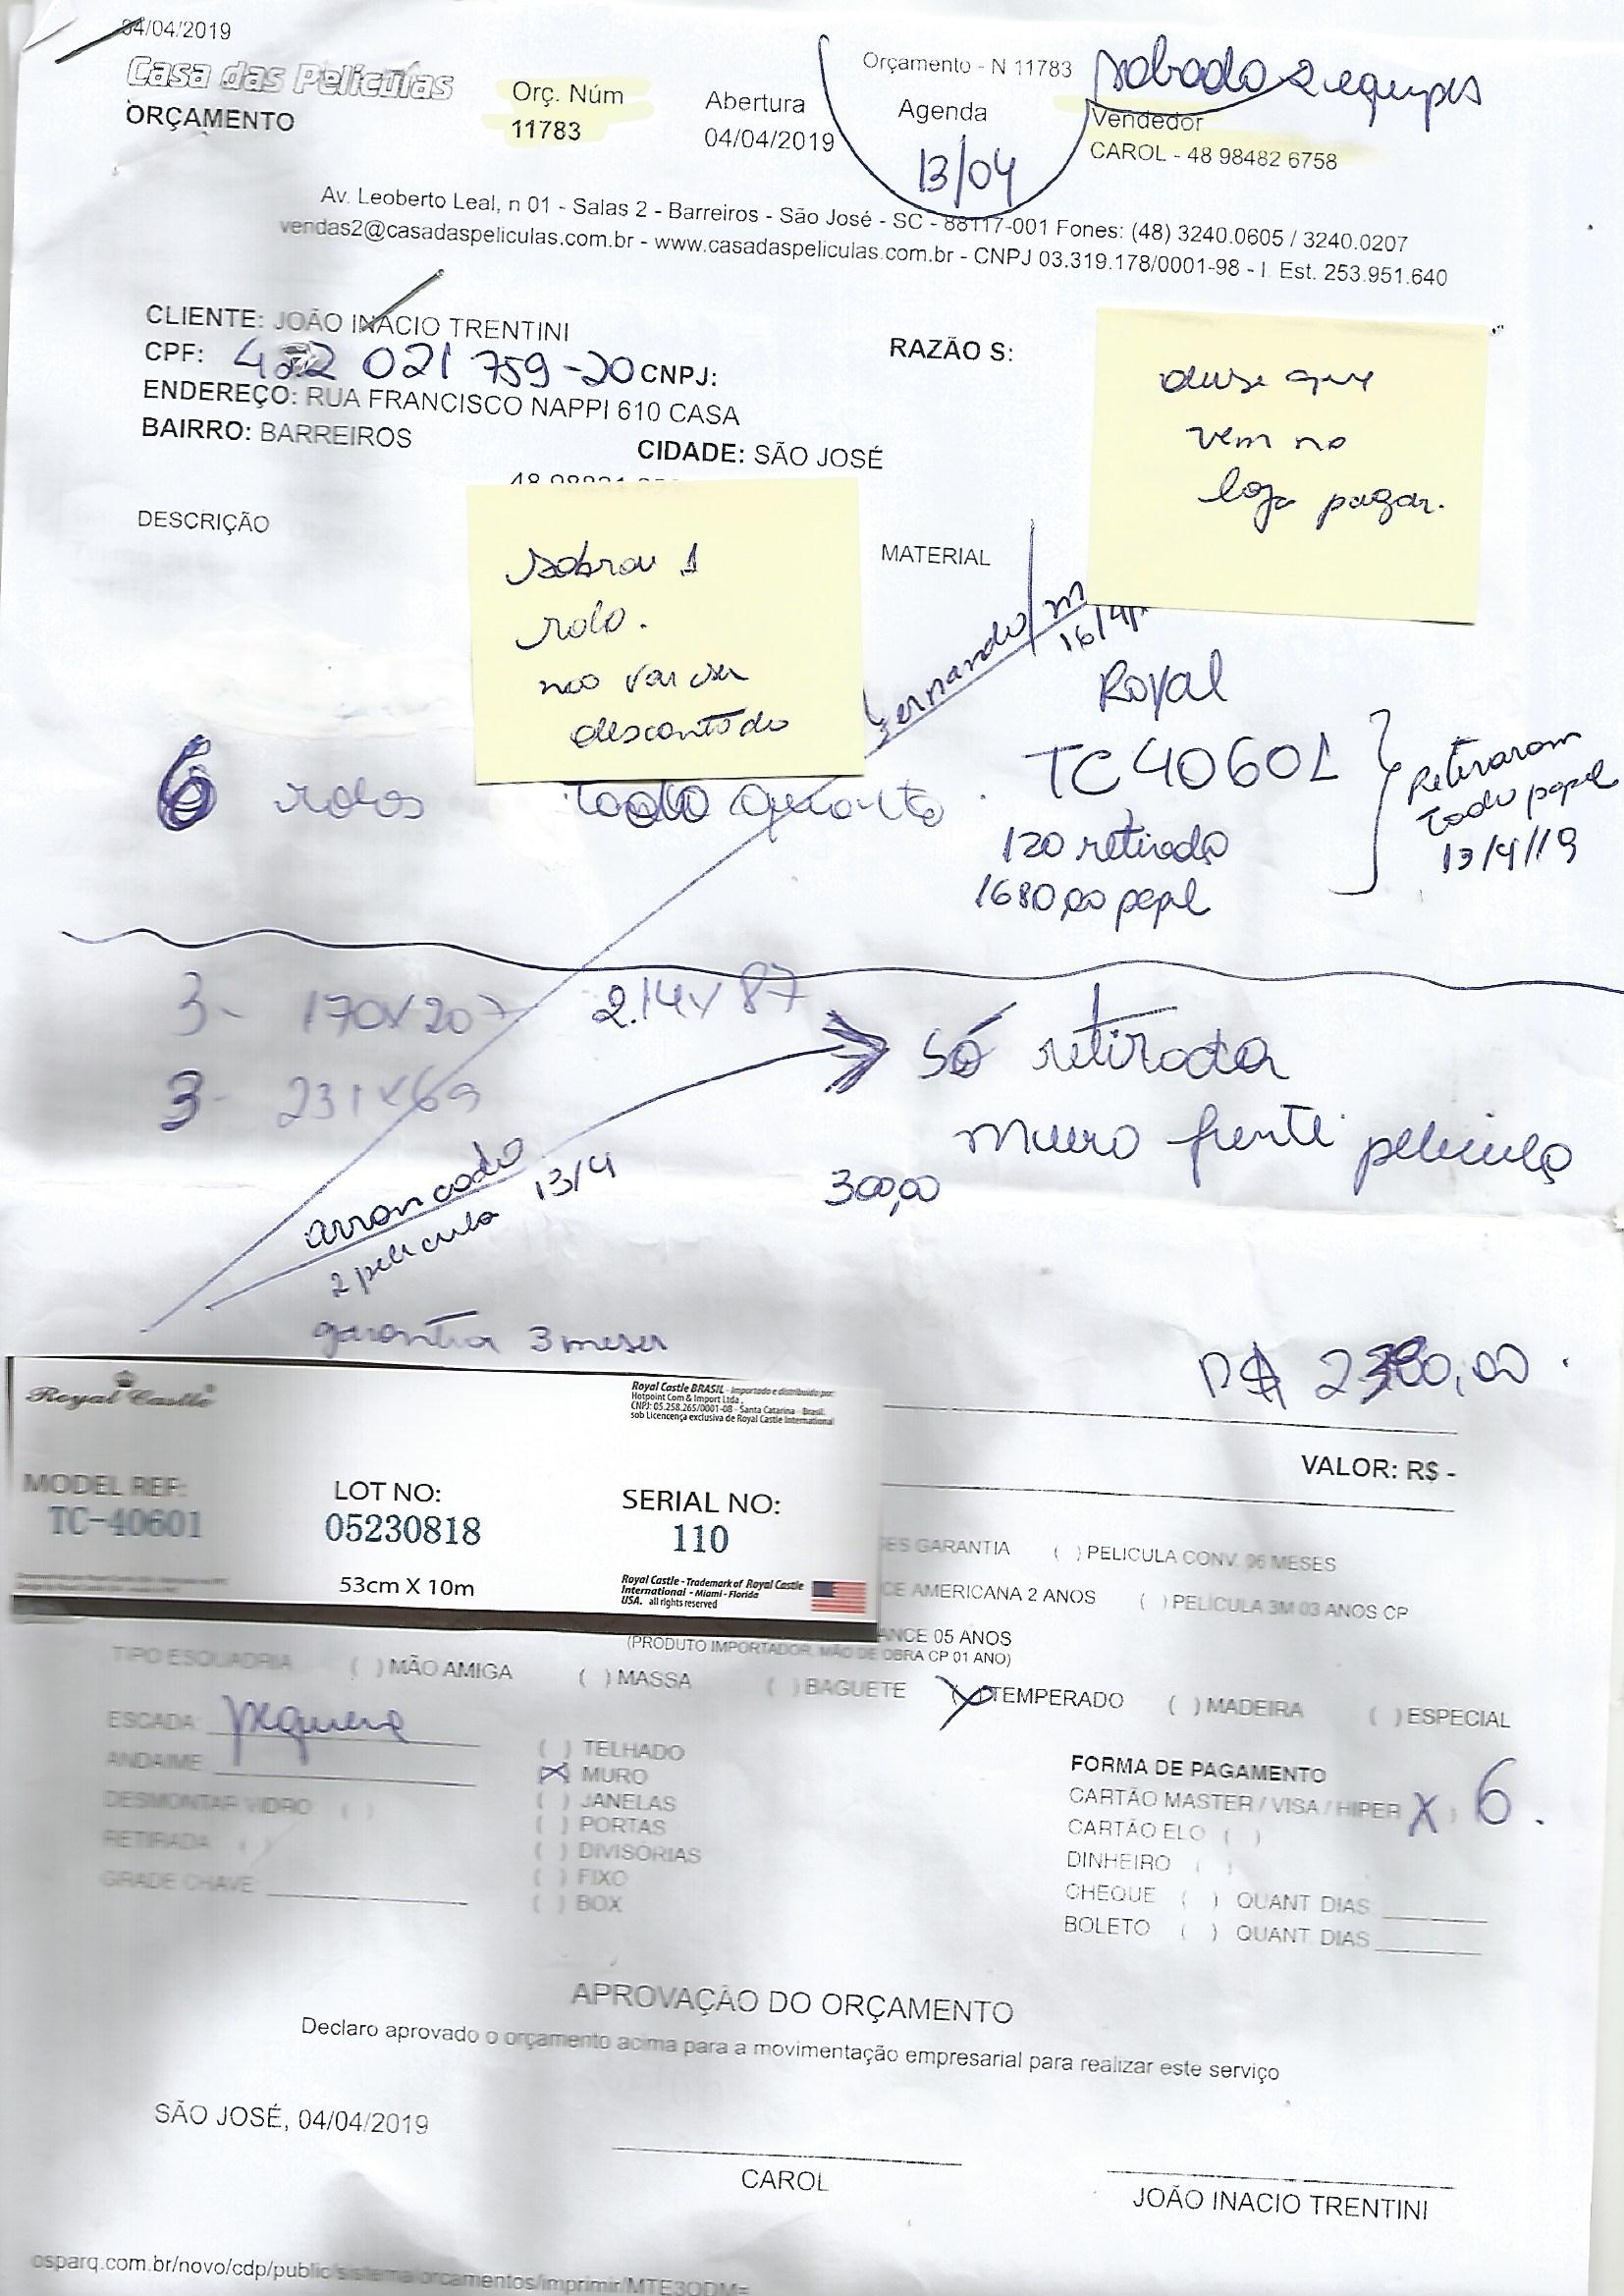 04/04/2019
Orçamento - N 11783
sabado 2 equipes
Casa das Películas
ORÇAMENTO
Orç. Núm
11783
Abertura
04/04/2019
Agenda
13/04
Vendedor
CAROL - 48 98482 6758
Av. Leoberto Leal, n 01 - Salas 2 - Barreiros - São José - SC - 88117-001 Fones: (48) 3240.0605 / 3240.0207
vendas2@casadaspeliculas.com.br - www.casadaspeliculas.com.br - CNPJ 03.319.178/0001-98 - I. Est. 253.951.640
CLIENTE: JOÃO INACIO TRENTINI
RAZÃO S:
CPF: 021 759-20 CNPJ:
ENDEREÇO: RUA FRANCISCO NAPPI 610 CASA
BAIRRO: BARREIROS
CIDADE: SÃO JOSÉ
disse que
vem na
loja pagar.
DESCRIÇÃO
MATERIAL
sobrou 1
rolo.
não vai ser
descontado
Fernando/m
16/4/1
Royal
6 rolos todo quarto. TC 40601
120 retirada
1680,00 papel
Retiraram
todo papel
13/4/19
3- 170x207 2.14x87
3- 231x69
só retirada
muro frente película
300,00
arrancado
2 película 13/4
garantia 3 meses
R$ 00
VALOR: R$ -
Royal Castle
Royal Castle BRASIL - Importado e distribuido por:
Hotpoint Com & Import Ltda
CNPJ: 05.258.265/0001-08 - Santa Catarina - Brasil.
sob Licencença exclusiva de Royal Castle International
MODEL REF:
TC-40601
LOT NO:
05230818
SERIAL NO:
110
53cm X 10m
Royal Castle - Trademark of Royal Castle
International - Miami - Florida
USA. all rights reserved
ES GARANTIA ( ) PELICULA CONV. 06 MESES
CE AMERICANA 2 ANOS ( ) PELÍCULA 3M 03 ANOS CP
ANCE 05 ANOS
(PRODUTO IMPORTADOR, MÃO DE OBRA CP 01 ANO)
TIPO ESQUADRIA ( ) MÃO AMIGA ( ) MASSA ( ) BAGUETE (X) TEMPERADO ( ) MADEIRA ( ) ESPECIAL
ESCADA: pequena
ANDAIME:
DESMONTAR VIDRO ( )
RETIRADA ( )
GRADE CHAVE
( ) TELHADO
(X) MURO
( ) JANELAS
( ) PORTAS
( ) DIVISÓRIAS
( ) FIXO
( ) BOX
FORMA DE PAGAMENTO
CARTÃO MASTER / VISA / HIPER X ) 6.
CARTÃO ELO ( )
DINHEIRO ( )
CHEQUE ( ) QUANT DIAS
BOLETO ( ) QUANT. DIAS
APROVAÇÃO DO ORÇAMENTO
Declaro aprovado o orçamento acima para a movimentação empresarial para realizar este serviço
SÃO JOSÉ, 04/04/2019
CAROL
JOÃO INACIO TRENTINI
osparq.com.br/novo/cdp/public/sistema/orcamentos/imprimir/MTE3ODM=